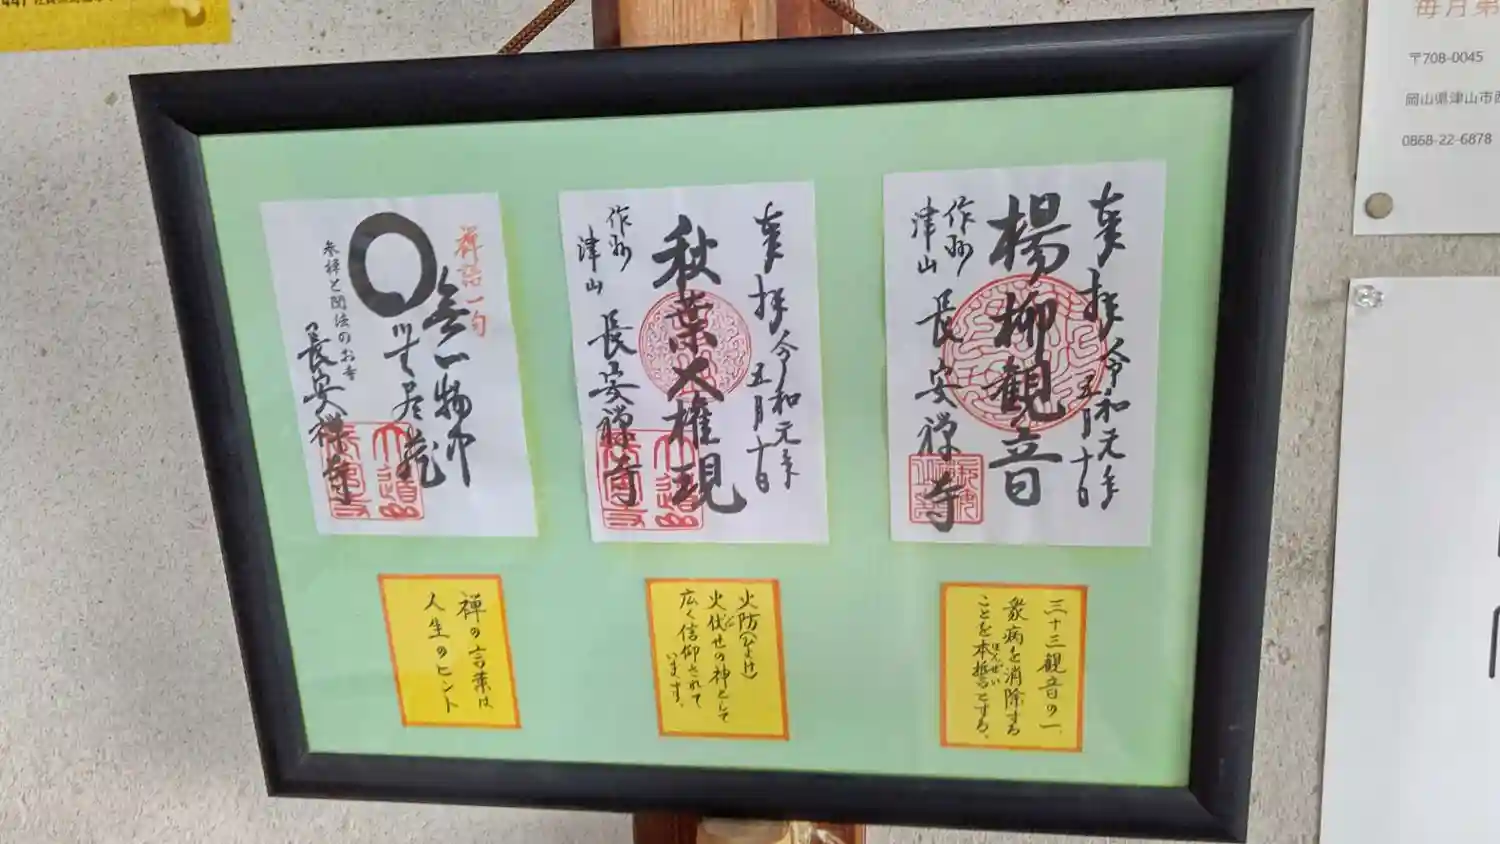 奉拝
令和元年
五月十日
楊柳観音
作州
津山
長安禅寺
奉拝
令和元年
五月十日
秋葉大権現
作州
津山
長安禅寺
禅語一句
無一物中
無尽蔵
参禅と聞法のお寺
長安禅寺
三十三観音の一、
衆病を消除する
ことを本誓とする。
ほんぜい
火防(ひよけ)
火伏せの神として
広く信仰されて
います。
禅の言葉は
人生のヒント
毎月第
〒708-0045
岡山県津山市西
0868-22-6878